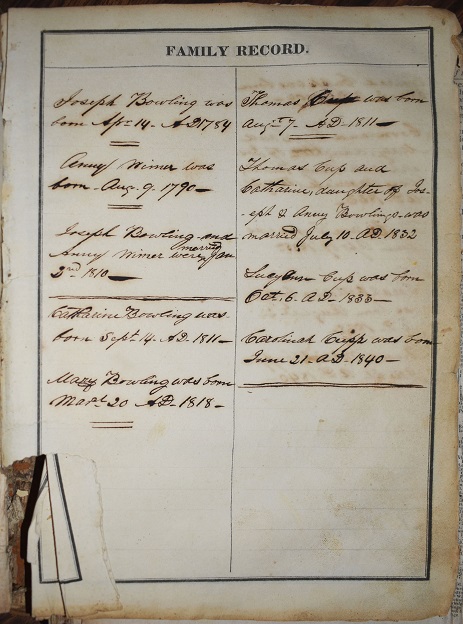 FAMILY RECORD.
Joseph Bowling was
born Apr. 14 - AD 1784
Anny Nimer was
born - Aug. 9. 1790 -
Joseph Bowling and
married
Anny Nimer were Jan
2nd 1810 -
Catharine Bowling was
born Sept. 14. AD. 1811 -
Mary Bowling was born
Mar. 20 AD - 1818 -
Thomas Cup was born
augt 7 - AD - 1811 -
Thomas Cup and
Catharine, daughter of Jos-
eph & Anny Bowling - was
married July 10. AD 1832
Lucy Ann Cup was born
Oct. 6. AD - 1833 -
Carolinah Cupp was born
June 21 - AD - 1840 -